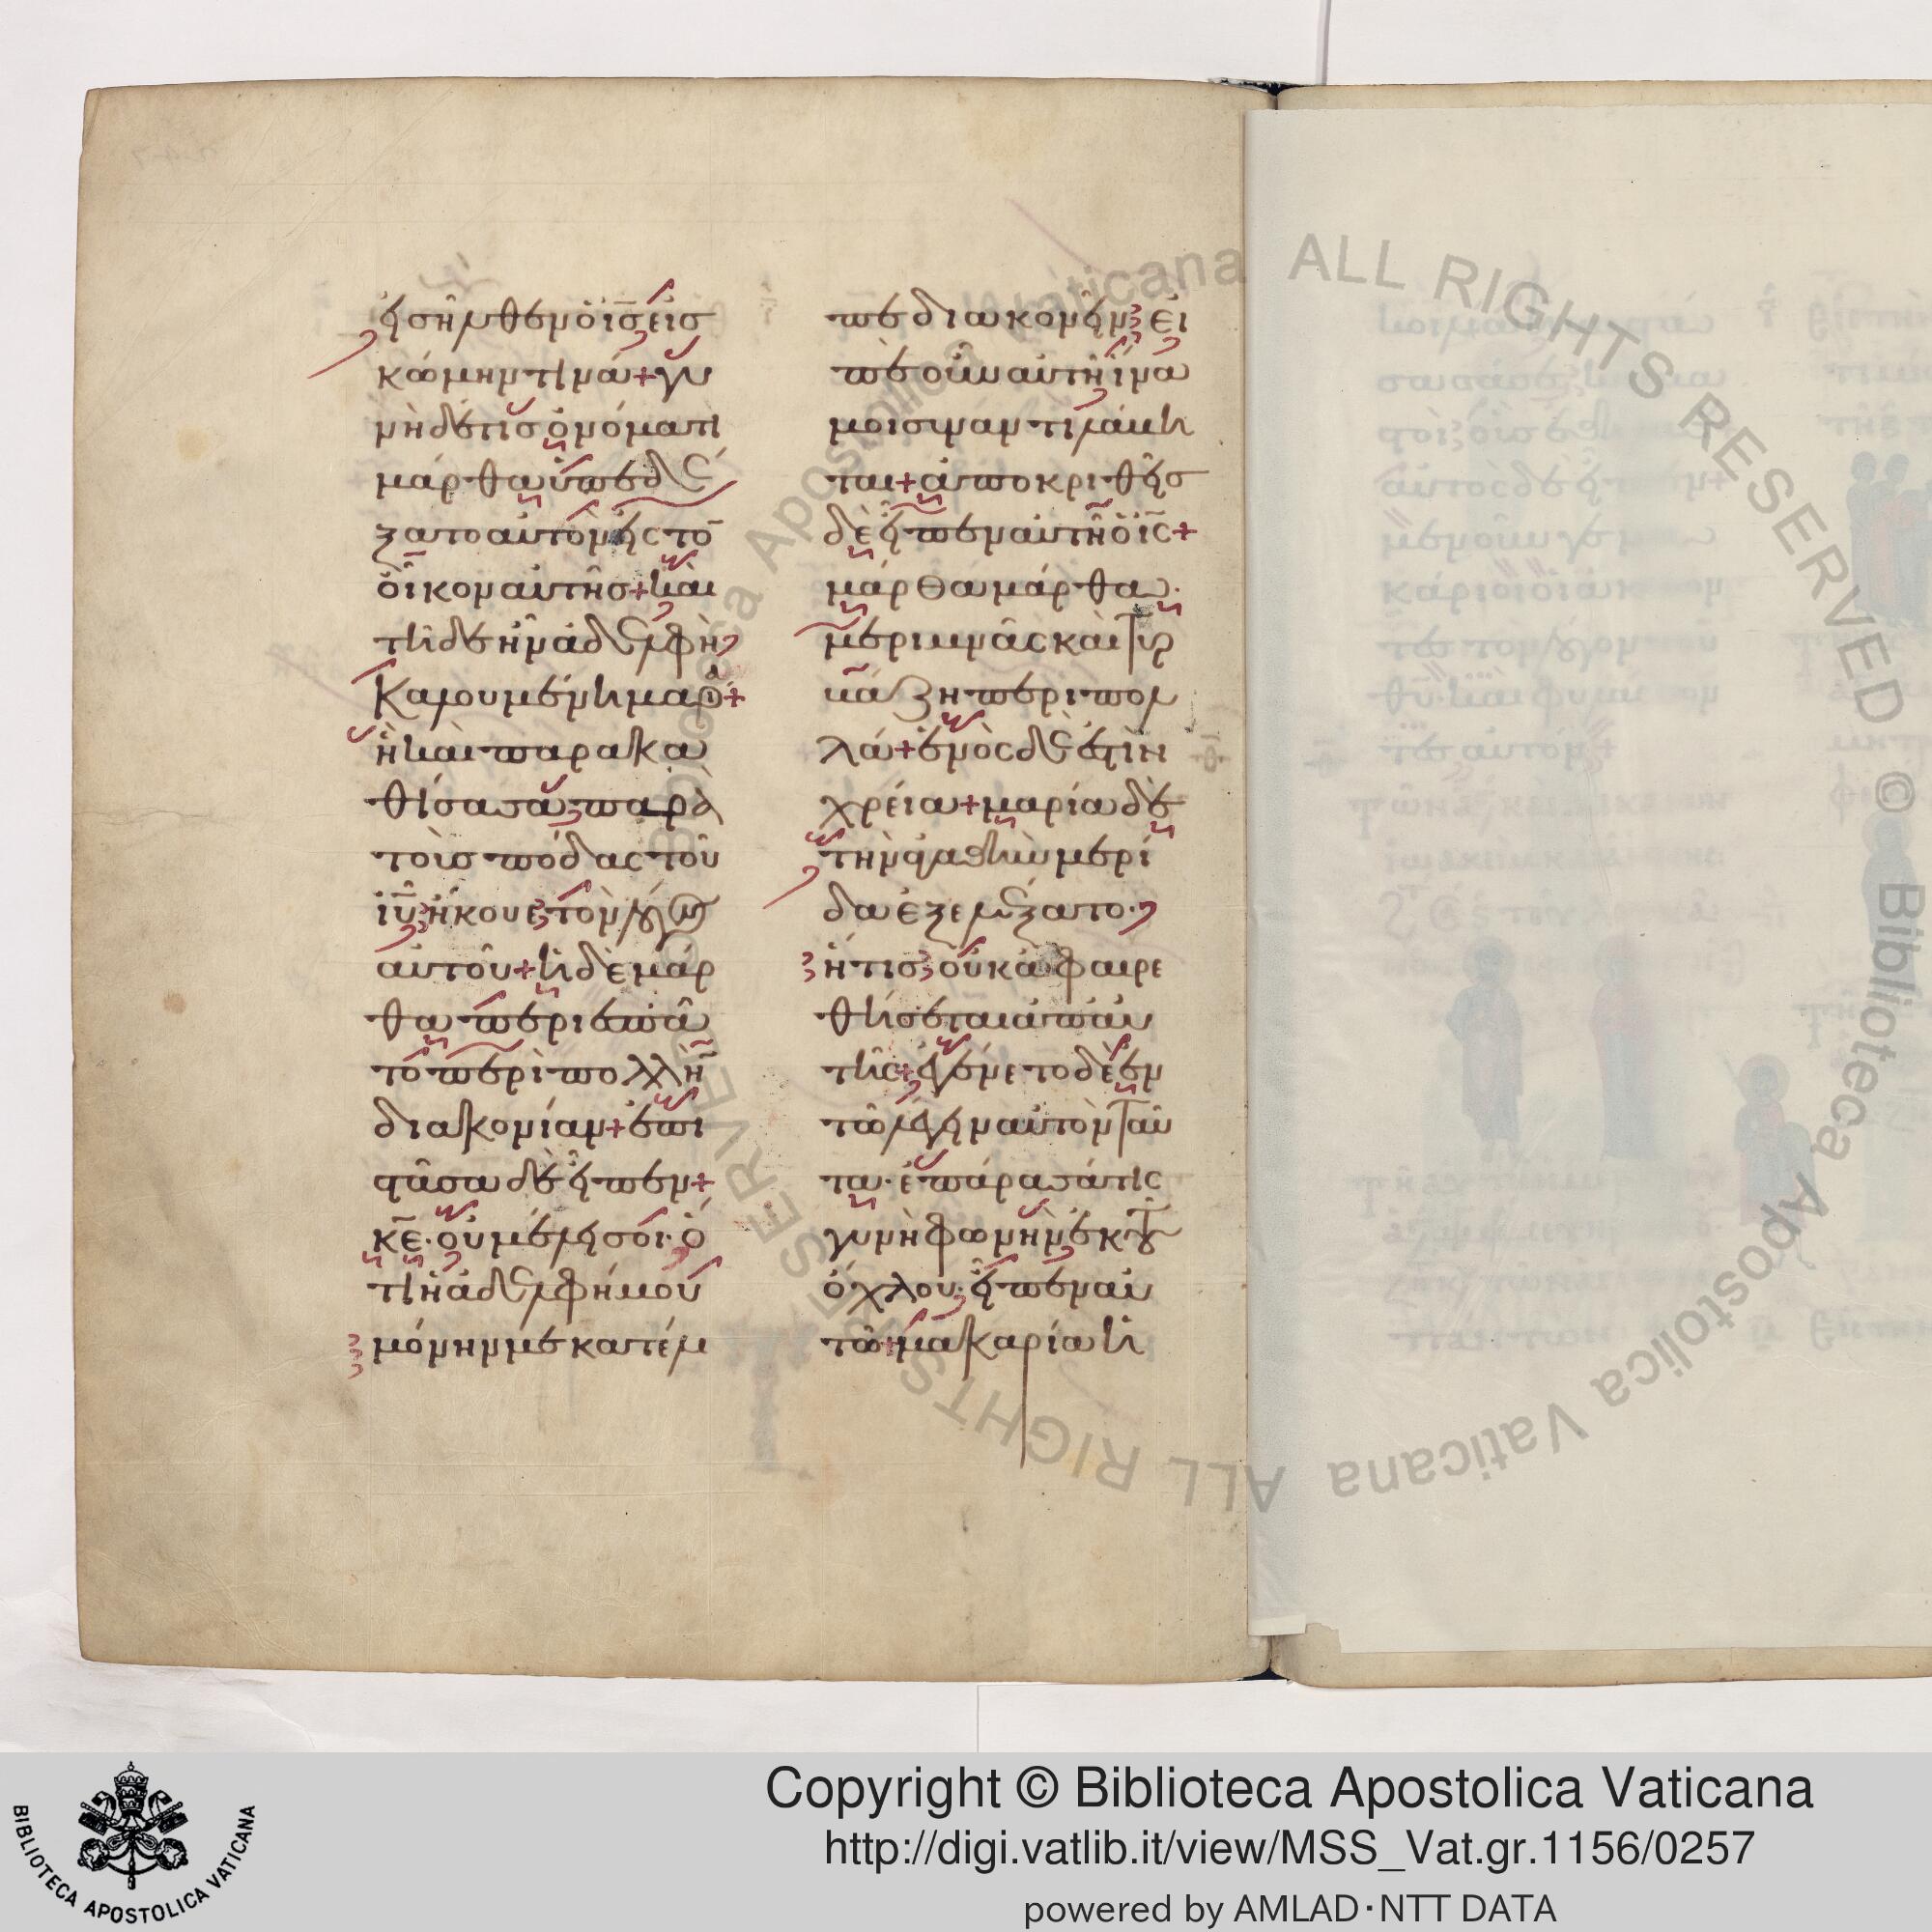 εἰσῆλθεν ὁ ῑς εἰσ
κώμην τινά + γυ
νὴ δέ τισ ὀνόματι
μάρθα ὑπεδέ
ξατο αὐτὸν εἰς τὸ
οἶκον αὐτῆσ + καὶ
τῆδε ἦν ἀδελφὴ
καλουμένη μαρία +
ἣ καὶ παρακα
θίσασα παρὰ
τοὺσ πόδας τοῦ
ῑῡ ἤκουε τὸν λόγον
αὐτοῦ + ἡ δὲ μάρ
θα περιεσπᾶ
το περὶ πολλὴν
διακονίαν + ἐπι
στᾶσα δὲ εἶπεν +
κ̄ε̄ · οὐ μέλει σοι · ὅ
τι ἡ ἀδελφή μου
μόνην με κατέλ
πε διακονεῖν εἰ
πὲ οὖν αὐτῇ ἵνα
μοι συναντιλάβη
ται + ἀποκριθεὶσ
δὲ εἶπεν αὐτῇ ὁ ῑς +
μάρθα μάρθα ·
μεριμνᾶς καὶ τυρ
βάζη περὶ πολ
λά + ἑνὸς δέ ἐστιν
χρεία + μαρία δὲ
τὴν ἀγαθὴν μερί
δα ἐξελέξατο ·
ἥτισ οὐκ ἀφαιρε
θήσεται ἀπ' αὐ
τῆς + ἐγένετο δὲ ἐν
τῶ λέγειν αὐτὸν ταῦ
τα · ἐπάρασά τις
γυνὴ φωνὴν ἐκ τοῦ
ὄχλου · εἶπεν αὐ
τῶ + μακαρία ἡ
ALL RIGHTS RESERVED © Biblioteca Apostolica Vaticana
BIBLIOTECA APOSTOLICA VATICANA
Copyright © Biblioteca Apostolica Vaticana
http://digi.vatlib.it/view/MSS_Vat.gr.1156/0257
powered by AMLAD·NTT DATA